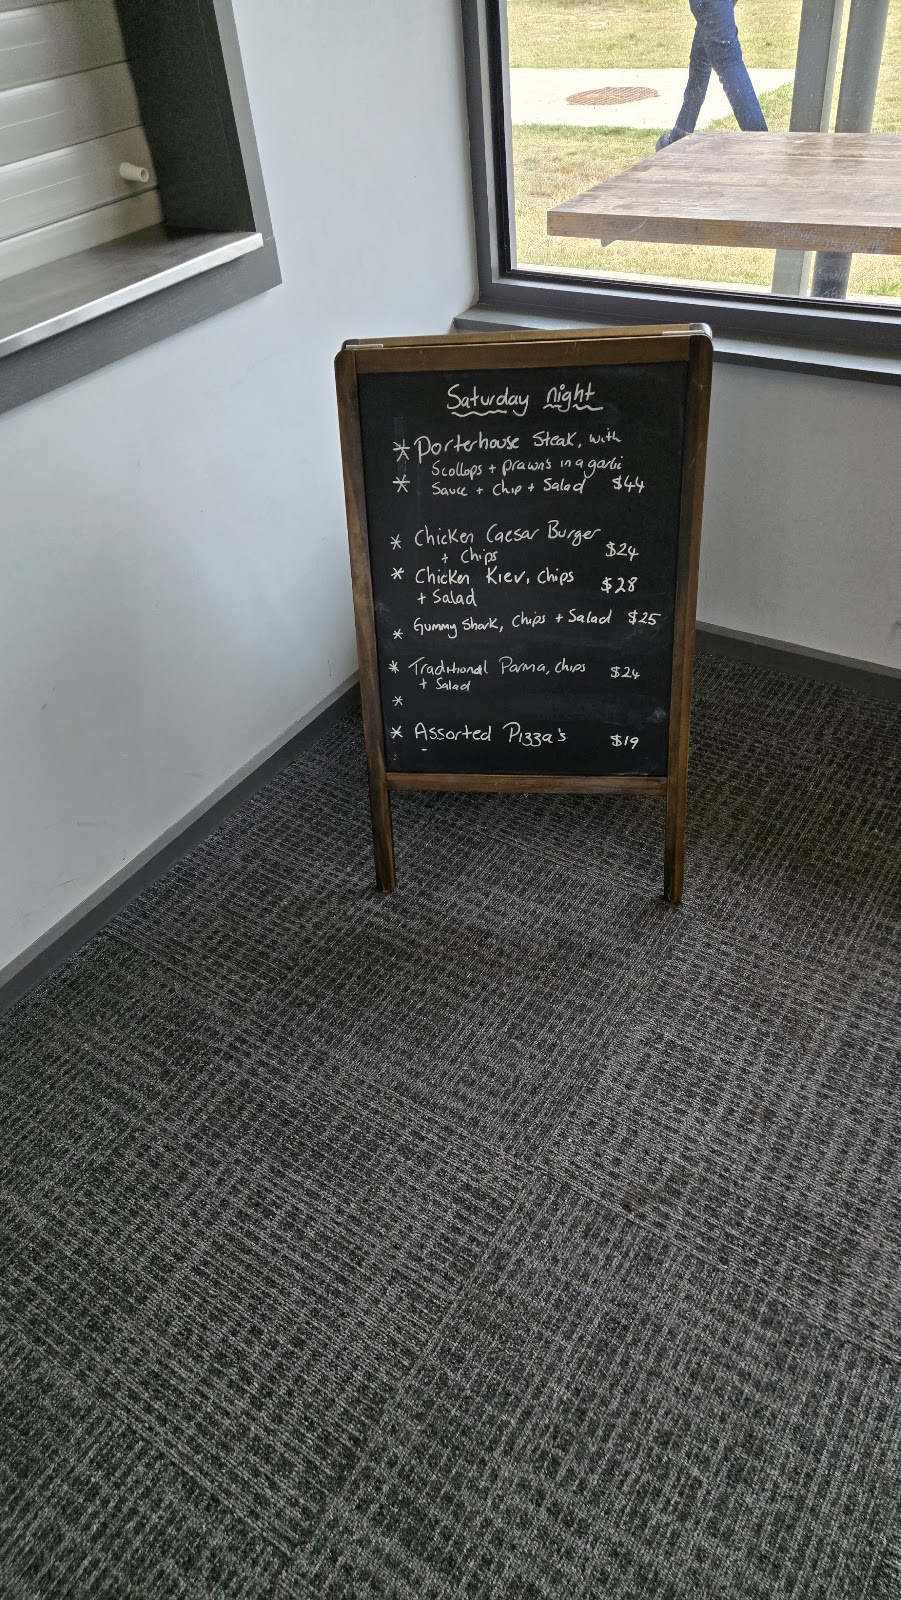 Saturday night
* Porterhouse Steak, with
Scollops + prawns in a garlic
* Sauce + Chip + Salad $44
* Chicken Caesar Burger
+ Chips $24
* Chicken Kiev, chips $28
+ Salad
* Gummy Shark, Chips + Salad $25
* Traditional Parma, chips $24
+ Salad
*
* Assorted Pizza's $19